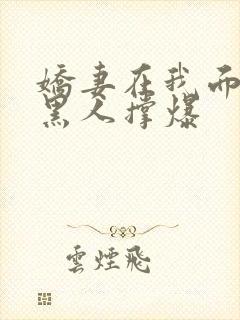 嬌妻在我面
黑人撐爆
雲煙飛